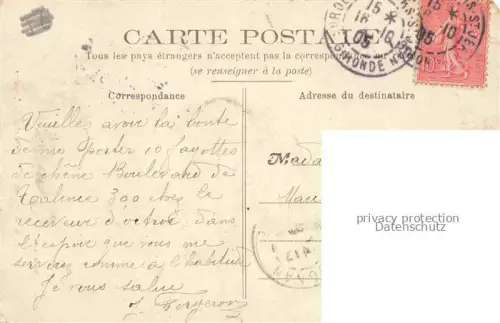 CARTE POSTALE
Tous les pays étrangers n'acceptent pas la correspondance au
(se renseigner à la poste)
Correspondance
Adresse du destinataire
Veuillez avoir la bonté
de me porter 10 fagottes
de chêne Boulevard de
Talence 300 chez le
receveur d'octroi, dans
l'espoir que vous me
servirez comme à l'habitude
Je vous salue
J. Bergeron
Mada
privacy protection
Datenschutz
15
10
05
GIRONDE
15
10
05